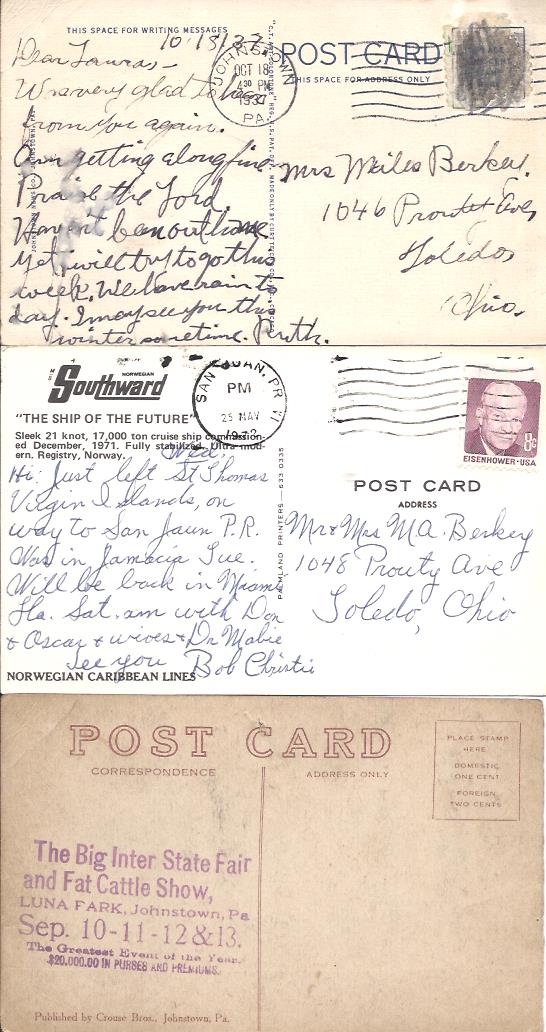 THIS SPACE FOR WRITING MESSAGES
10/18/37
Dear Laura -
Was very glad to hear
from you again.
Am getting along fine
Praise the Lord.
Haven't been out home
yet, will try to go this
week. We have rain to
day. I may see you this
winter sometime. Ruth.
JOHNSTOWN
OCT 18
4 30 PM
1937
PA.
POST CARD
THIS SPACE FOR ADDRESS ONLY
Mrs Miles Berkey.
1046 Prouty Ave,
Toledo,
Ohio.
M/S NORWEGIAN
Southward
"THE SHIP OF THE FUTURE"
Sleek 21 knot, 17,000 ton cruise ship commission-
ed December, 1971. Fully stabilized. Ultra-mod-
ern. Registry, Norway.
Wed.
Hi: Just left St Thomas
Virgin Islands, on
way to San Jaun P.R.
Was in Jamacia Tue.
Will be back in Miami
Fla. Sat. am with Don
& Oscar & wives & Dr Mabie
See you Bob Christie
NORWEGIAN CARIBBEAN LINES
PALMLAND PRINTERS - 633-0335
SAN JUAN, PR
PM
25 MAY
1972
8c
EISENHOWER·USA
POST CARD
ADDRESS
Mr & Mrs M.A. Berkey
1048 Prouty Ave
Toledo, Ohio
POST CARD
CORRESPONDENCE
ADDRESS ONLY
PLACE STAMP
HERE
DOMESTIC
ONE CENT
FOREIGN
TWO CENTS
The Big Inter State Fair
and Fat Cattle Show,
LUNA PARK, Johnstown, Pa
Sep. 10-11-12 & 13.
The Greatest Event of the Year.
$20,000.00 IN PURSES AND PREMIUMS.
Published by Crouse Bros., Johnstown, Pa.